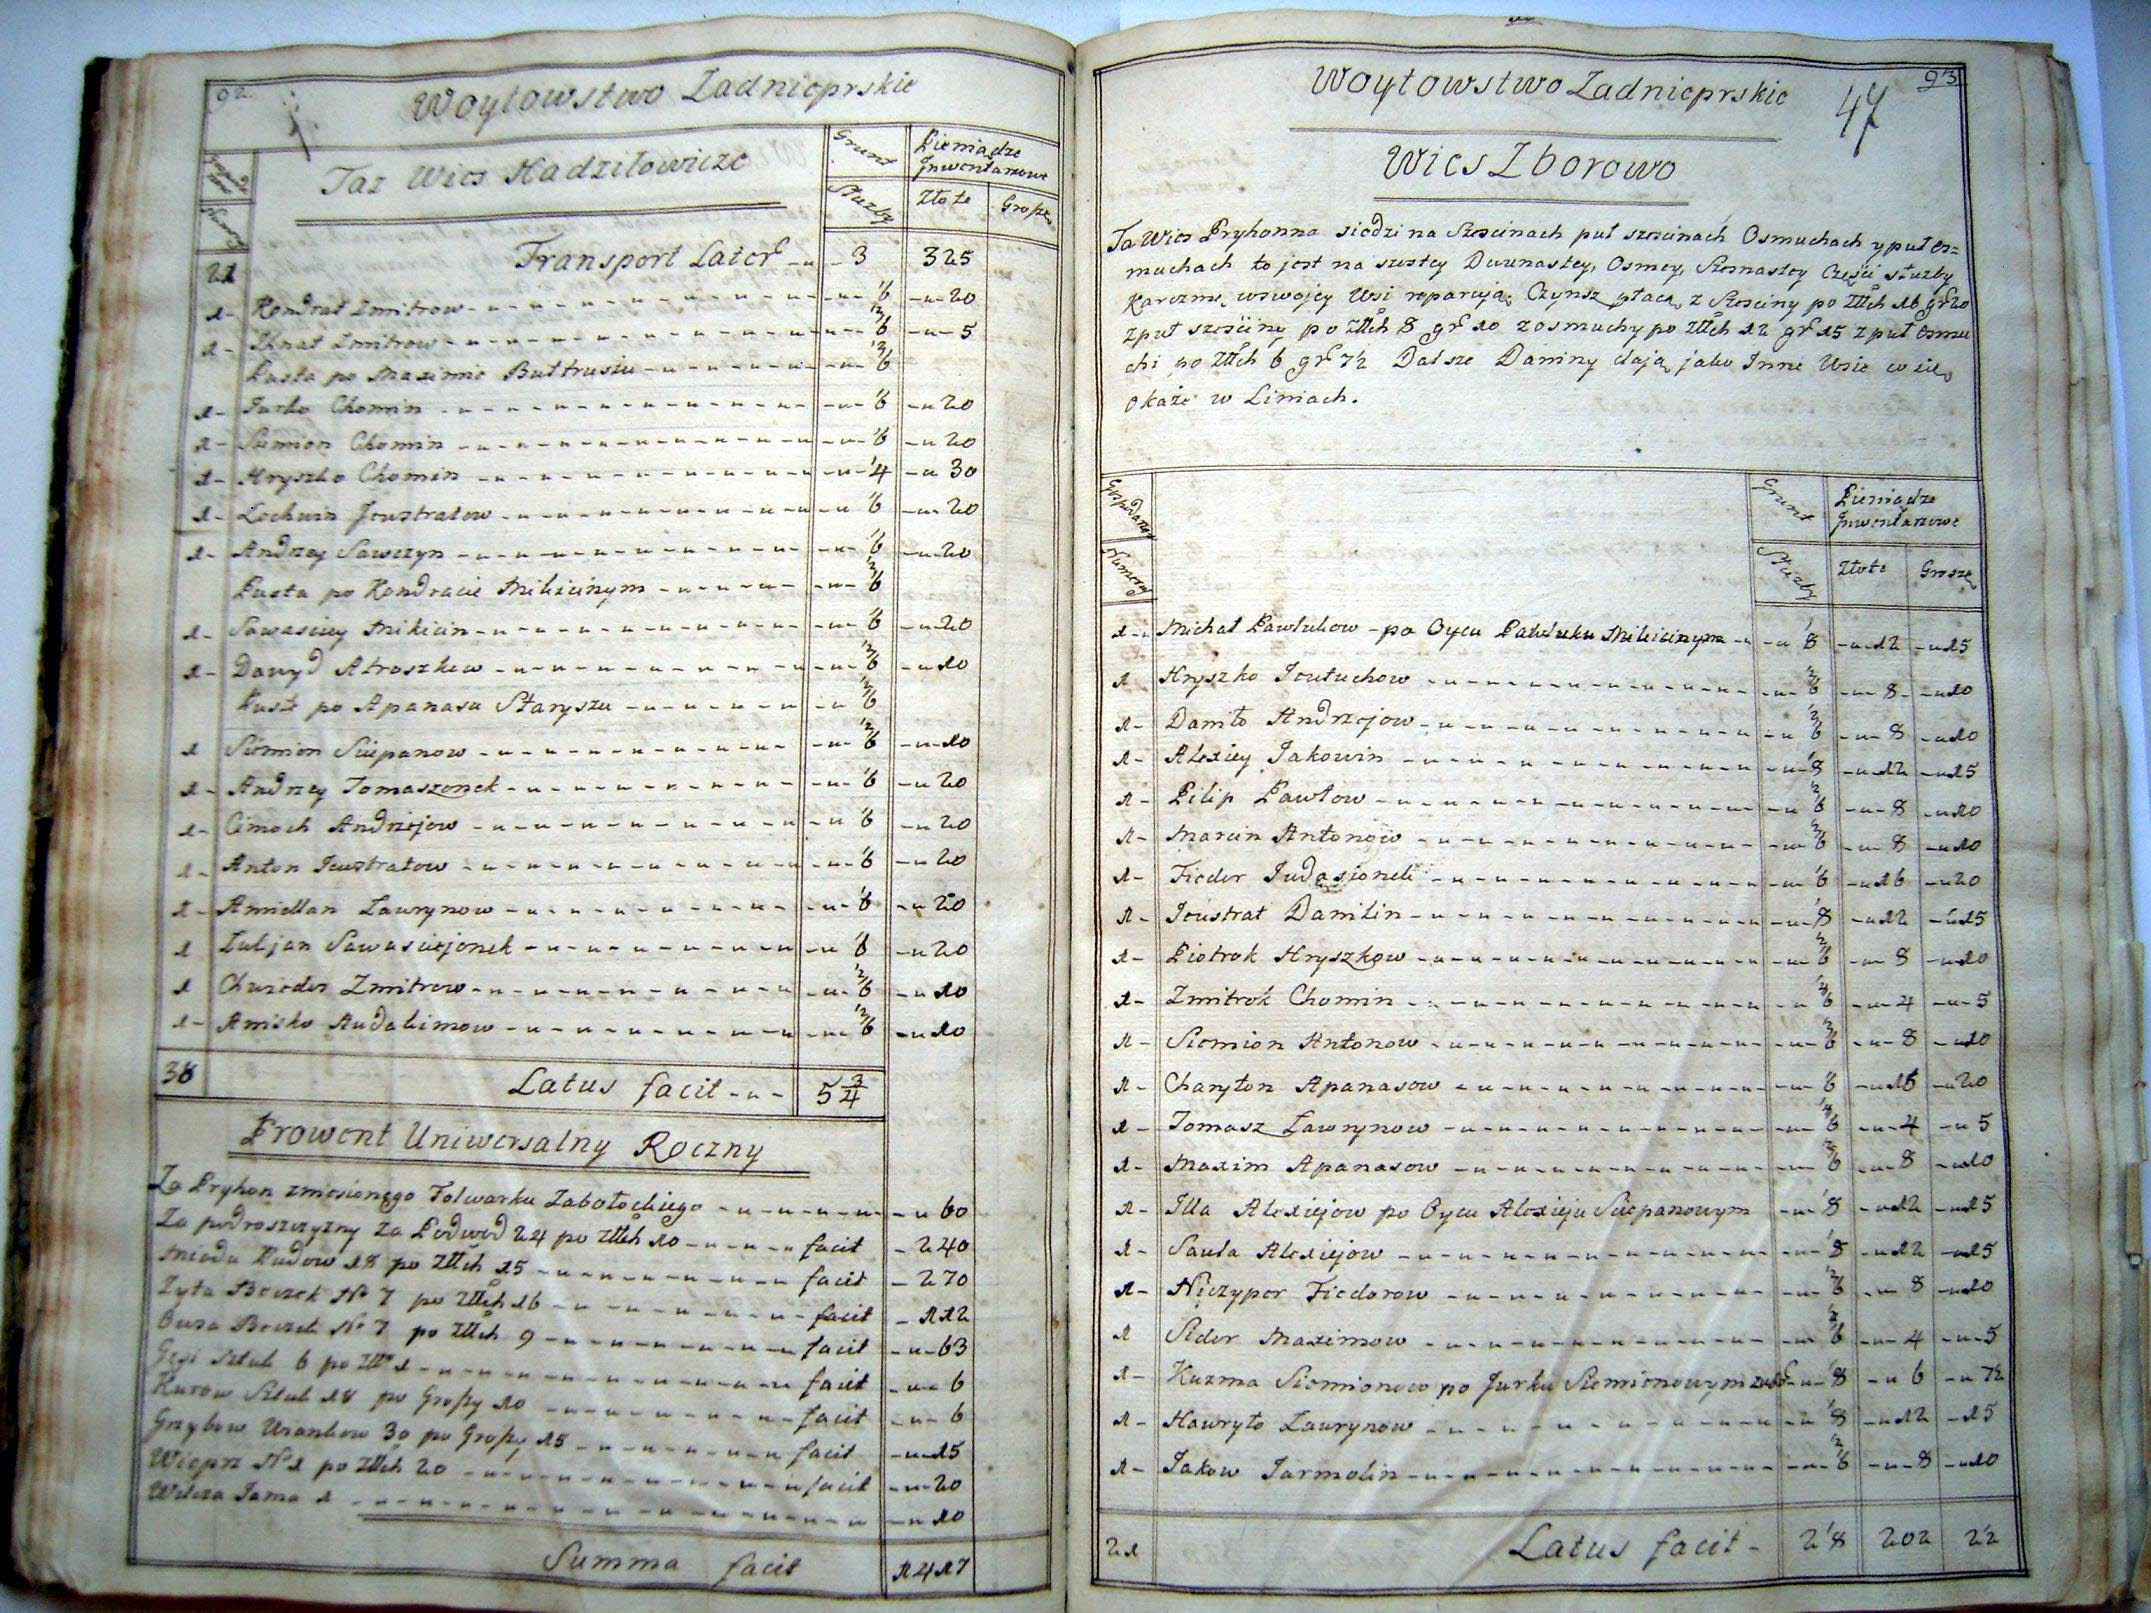 92.
Woytowstwo Zadnieprskie
Taz Wies Hadziłowicze
Grunt
Pieniądze Inwentarzowe
Numera
Służby
Złote
Grosze
21 Transport Later 3 325
1 Kondrat Zmitrow 1/6 20
1 Ihnat Zmitrow 1/2/6 5
Pusta po Maximie Buttrusiu 1/2/6
1 Jurko Chomin 1/6 20
1 Siemion Chomin 1/6 20
1 Hryszko Chomin 1/4 30
1 Lochwin Jeustratow 1/6 20
1 Andrzey Sawczyn 1/6 20
Pusta po Kondracie Mikicinym 1/2/6
1 Sawasciey Mikicin 1/6 20
1 Dawyd Atroszkow 1/2/6 10
Puste po Apanasu Staryszu 1/2/6
1 Siemion Sciepanow 1/2/6 10
1 Andrzey Tomaszonek 1/6 20
1 Cimoch Andrzejow 1/6 20
1 Anton Jeustratow 1/6 20
1 Amiellan Ławrynow 1/6 20
1 Zulijan Sawasciejonek 1/6 20
1 Chwiedor Zmitrow 1/2/6 10
1 Anisko Audakimow 1/2/6 10
38 Latus facit 5 3/4
Prowent Uniwersalny Roczny
Za Pryhon zniesionego Folwarku Zabołockiego 60
Za podroszczyzny za Podwod 24 po Złłch 10 facit 240
Miodu Pudow 18 po Złłch 15 facit 270
Zyta Beczek No 7 po Złłch 16 facit 112
Owsa Beczek No 7 po Złłch 9 facit 63
Gęsi Sztuk 6 po Złł 1 facit 6
Kurow Sztuk 18 po Groszy 10 facit 6
Grzybow Wiankow 30 po Groszy 15 facit 15
Wieprz No 1 po Złłch 20 facit 20
Wilcza Jama 1 10
Summa facit 1417
93
47
Woytowstwo Zadnieprskie
Wies Zborowo
Ta Wies Pryhonna siedzi na Szescinach puł szescinach Osmuchach y puł os=
muchach to jest na szostey Dwunastey, Osmey, Szesnastey Części służby
Karczmę wswojey Wsi reparują. Czynsz płacą z Szesciny po Złłch 16 gr 20
z puł szesciny po Złłch 8 gr 10 z osmuchy po Złłch 12 gr 15 z puł osmu
chi po Złłch 6 gr 7 1/2 Dalsze Daniny dają jako Inne Wsie co się
okaże w Liniach.
Grunt
Pieniądze Inwentarzowe
Numera
Służby
Złote
Grosze
1 Michał Pawlukow po Oycu Pawluku Mikicinym 1/8 12 15
1 Hryszko Jeutuchow 1/2/6 8 10
1 Daniło Andrzejow 1/2/6 8 10
1 Alexiey Jakowin 1/8 12 15
1 Pilip Pawłow 1/2/6 8 10
1 Marcin Antonow 1/2/6 8 10
1 Fiedor 1/6 16 20
1 Jeustrat Danilin 1/8 12 15
1 Piotrok Hryszkow 1/2/6 8 10
1 Zmitrok Chomin 1/4/6 4 5
1 Siemion Antonow 1/2/6 8 10
1 Charyton Apanasow 1/6 16 20
1 Tomasz Ławrynow 1/4/6 4 5
1 Maxim Apanasow 1/2/6 8 10
1 Illa Alexiejow po Oycu Alexieju Sciepanowym 1/8 12 15
1 Sauła Alexiejow 1/8 12 15
1 Niczypor Fiedorow 1/2/6 8 10
1 Sidor Maximow 4 5
1 Kuzma Siemionow po Jurku Siemionowym 1/8 6 7 1/2
1 Hawryło Ławrynow 1/8 12 15
1 Jakow Jarmolin 1/2/6 8 10
21 Latus facit 2 1/8 202 2 1/2